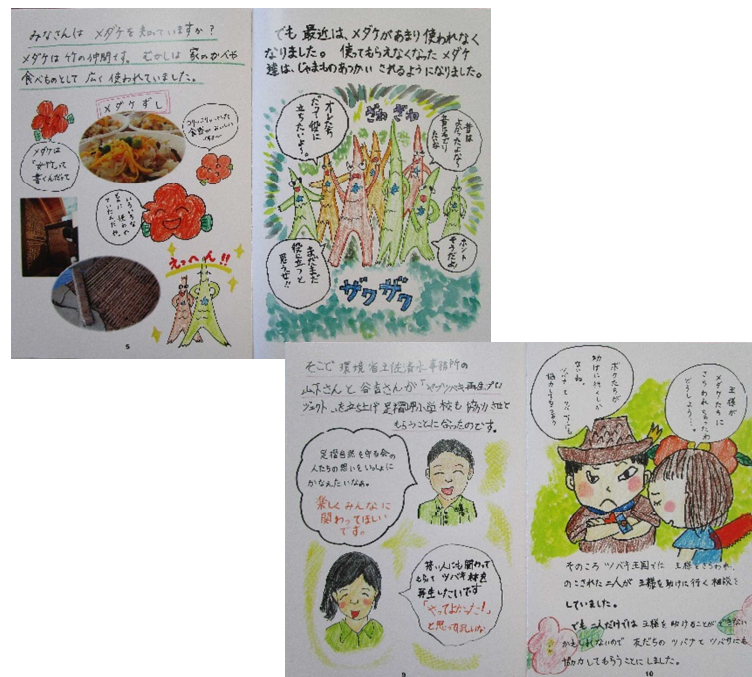 みなさんは メダケを知っていますか？
メダケは竹の仲間です。むかしは 家のかべや
食べものとして 広く使われていました。
メダケずし
コリッコリッとした
食感がおいしい
メダケは
「女竹」って
書くんだって
いろいろな
えっへん!!
5
でも最近は、メダケがあまり使われなく
なりました。 使ってもらえなくなった メダケ
達は、じゃまものあつかい されるようになりました。
ざわざわ
オレたち
だって役に
立ちたいよ〜。
昔は
よかったよなぁ
ホント
そうだよ!
まだまだ
役に立つと
思うぜ!!
ザワザワ
そこで 環境省土佐清水事務所の
山下さんと 谷吉さんが「ヤブツバキ再生プロ
ジェクト」を立ち上げ 足摺岬小学校も協力させて
もらうことになったのです。
足摺自然を守る会の
人たちの想いをいっしょに
かなえたいなぁ。
楽しくみんなに
関わってほしい
です。
若い人にも関わって
もらって ツバキ林を
再生したいです
「やってよかった!」
と思ってほしいな
9
王様が
メダケたちに
さらわれちゃったわ
どうしよう…。
ボクたちが
助けに行くしか
ないね。
ツバナとツバサにも
協力してもらおう
そのころ ツバキ王国では 王様をさらわれ、
のこされた二人が 王様を助けに行く相談を
していました。
でも 二人だけでは 王様を助けることができない
かもしれないので 友だちの ツバナと ツバサにも
協力してもらうことにしました。
10